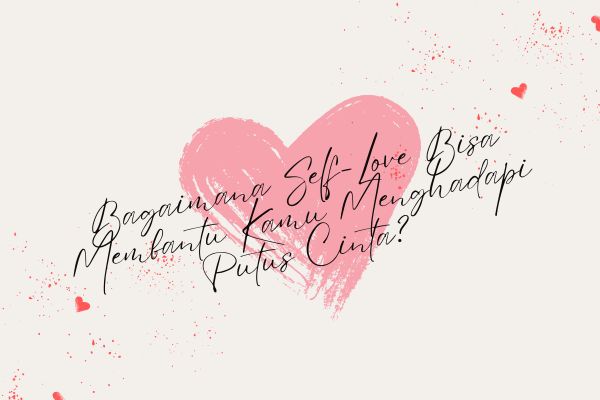 Bagaimana Self-Love Bisa
Membantu Kamu Menghadapi
Putus Cinta?